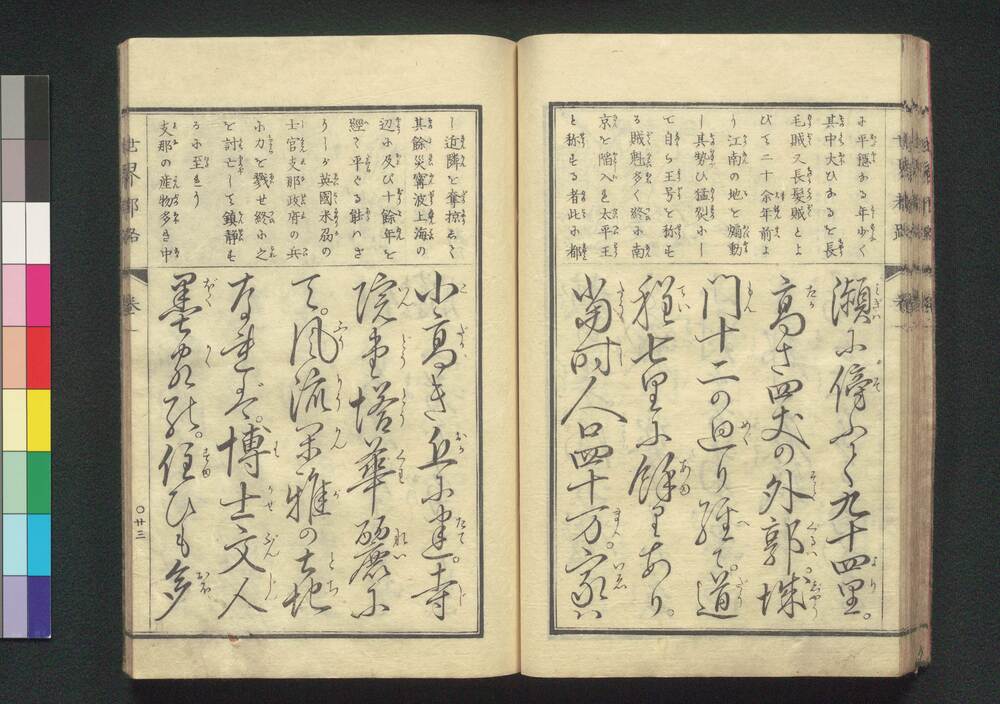 に平穏なる年少く
其中大ひなるを長
毛賊又長髪賊とよ
びて二十余年前よ
り江南の地を煽動
し其勢ひ猛烈にし
て自ら王号を称す
る賊魁多く終に南
京を陥入を太平王
と称する者此に都
瀬に傍ふて九十四里。
高さ四丈の外郭。城
門十二の廻り経て。道
程七里に餘りあり。
当時人口四十万。家ハ
し近隣を奪掠して
其餘災寗波上海の
辺に及び十餘年を
經て平ぐる能ハざ
りしが英國米為の
士官支那政府の兵
に力を戮せ終に之
を討亡して鎮静す
るに至れり
支那の産物多き中
小高き丘に建。寺
院堂塔華麗に
て。風流閑雅の土地
なれバ。博士文人
墨客の。住ひも多
世界都路
巻一
〇廿三